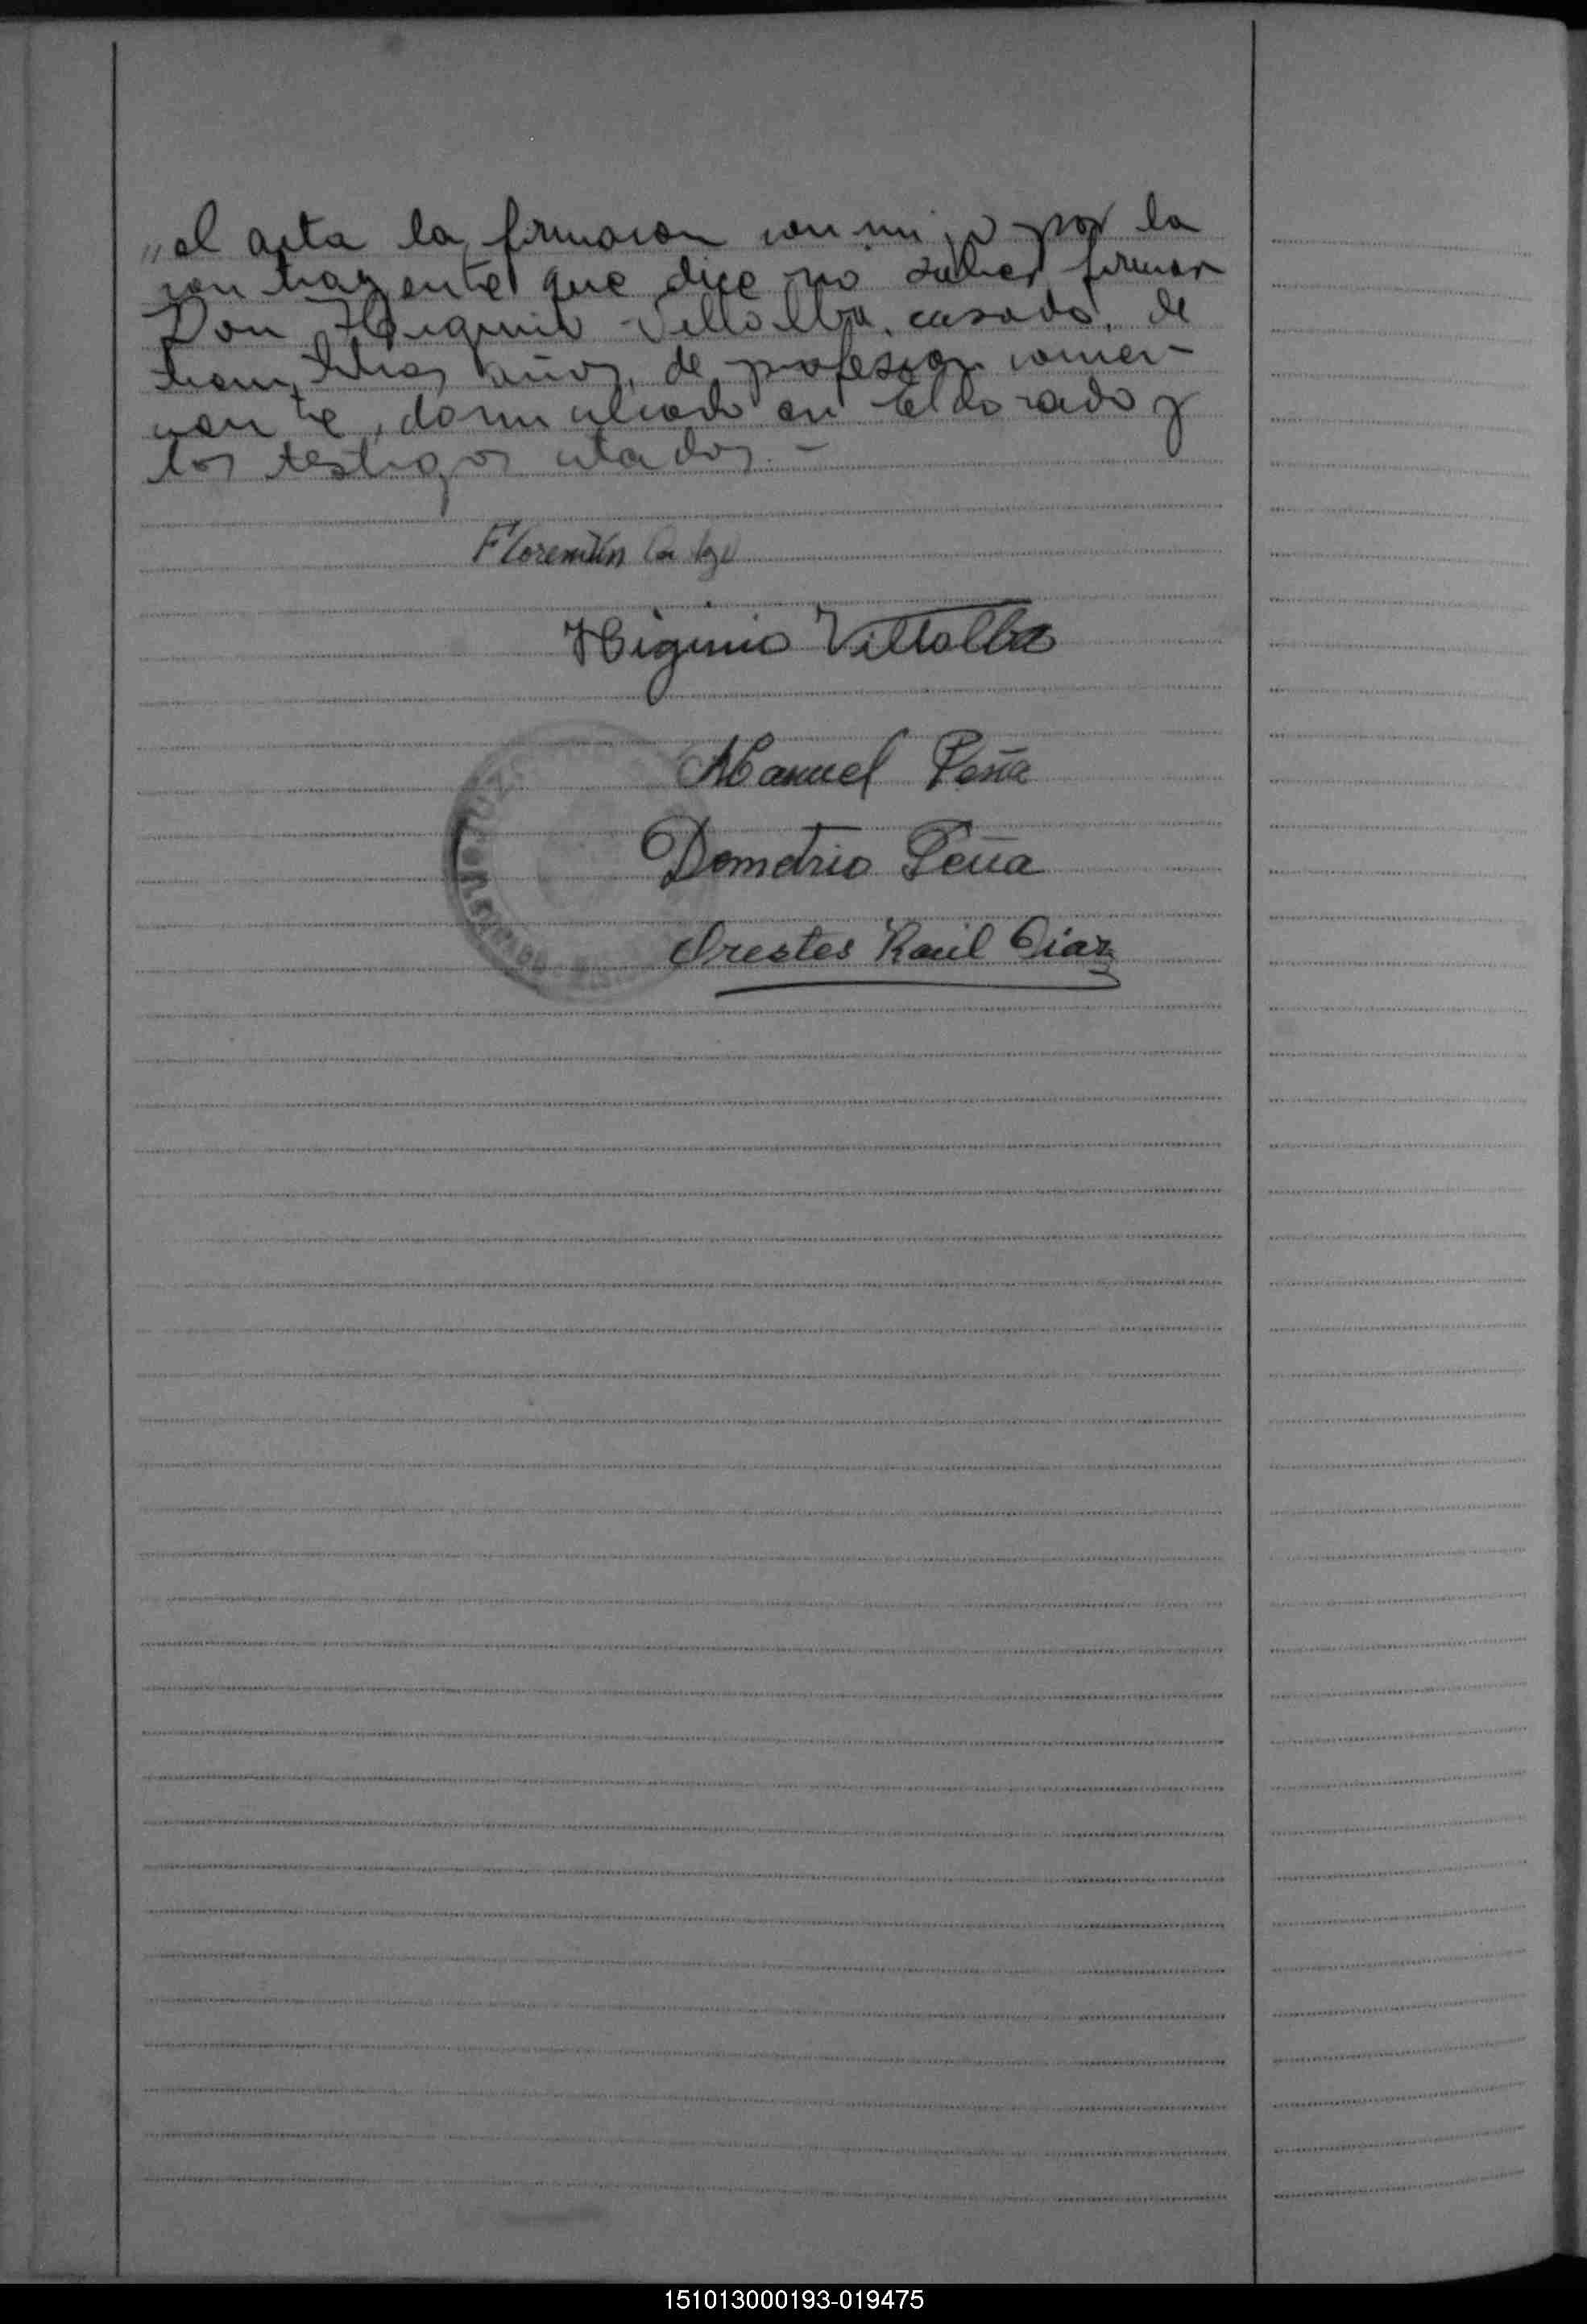 „el acta la firmaron conmigo por la
contrayente que dice no saber firmar
Don Higinio Villalba, casado, de
treinta años, de profesion comer-
ciante, domiciliado en Eldorado y
los testigos citados. –
Florentin
Higinio Villalba
Manuel Peña
Demetrio Peña
Orestes Raúl Diaz
151013000193-019475